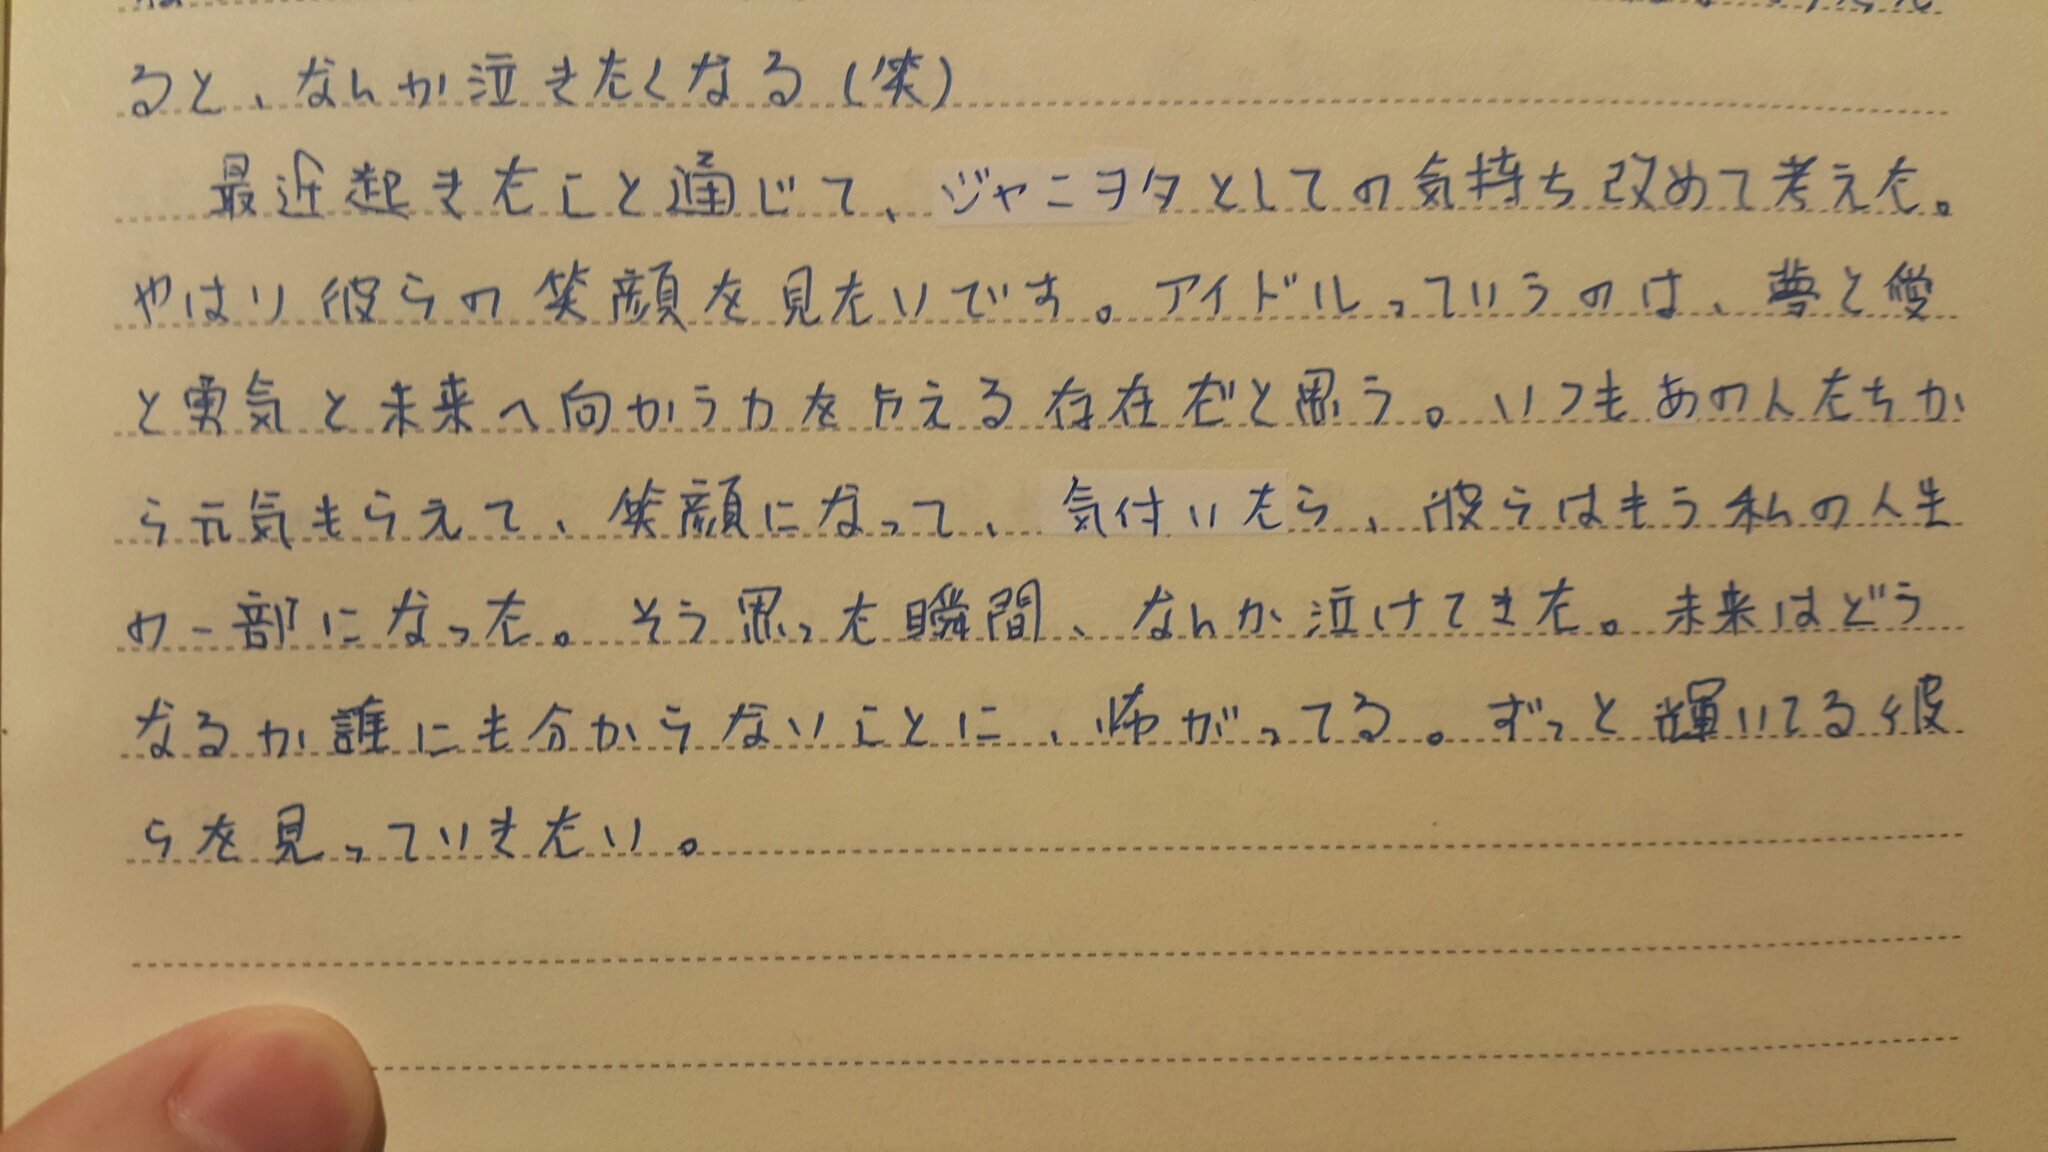 ると、なんか泣きたくなる（笑）
最近起きたこと通じて、ジャニヲタとしての気持ち改めて考えた。
やはり彼らの笑顔を見たいです。アイドルっていうのは、夢と愛
と勇気と未来へ向かう力を与える存在だと思う。いつもあの人たちか
ら元気もらえて、笑顔になって、気付いたら、彼らはもう私の人生
の一部になった。そう思った瞬間、なんか泣けてきた。未来はどう
なるか誰にも分からないことに、怖がってる。ずっと輝いてる彼
らを見っていきたい。